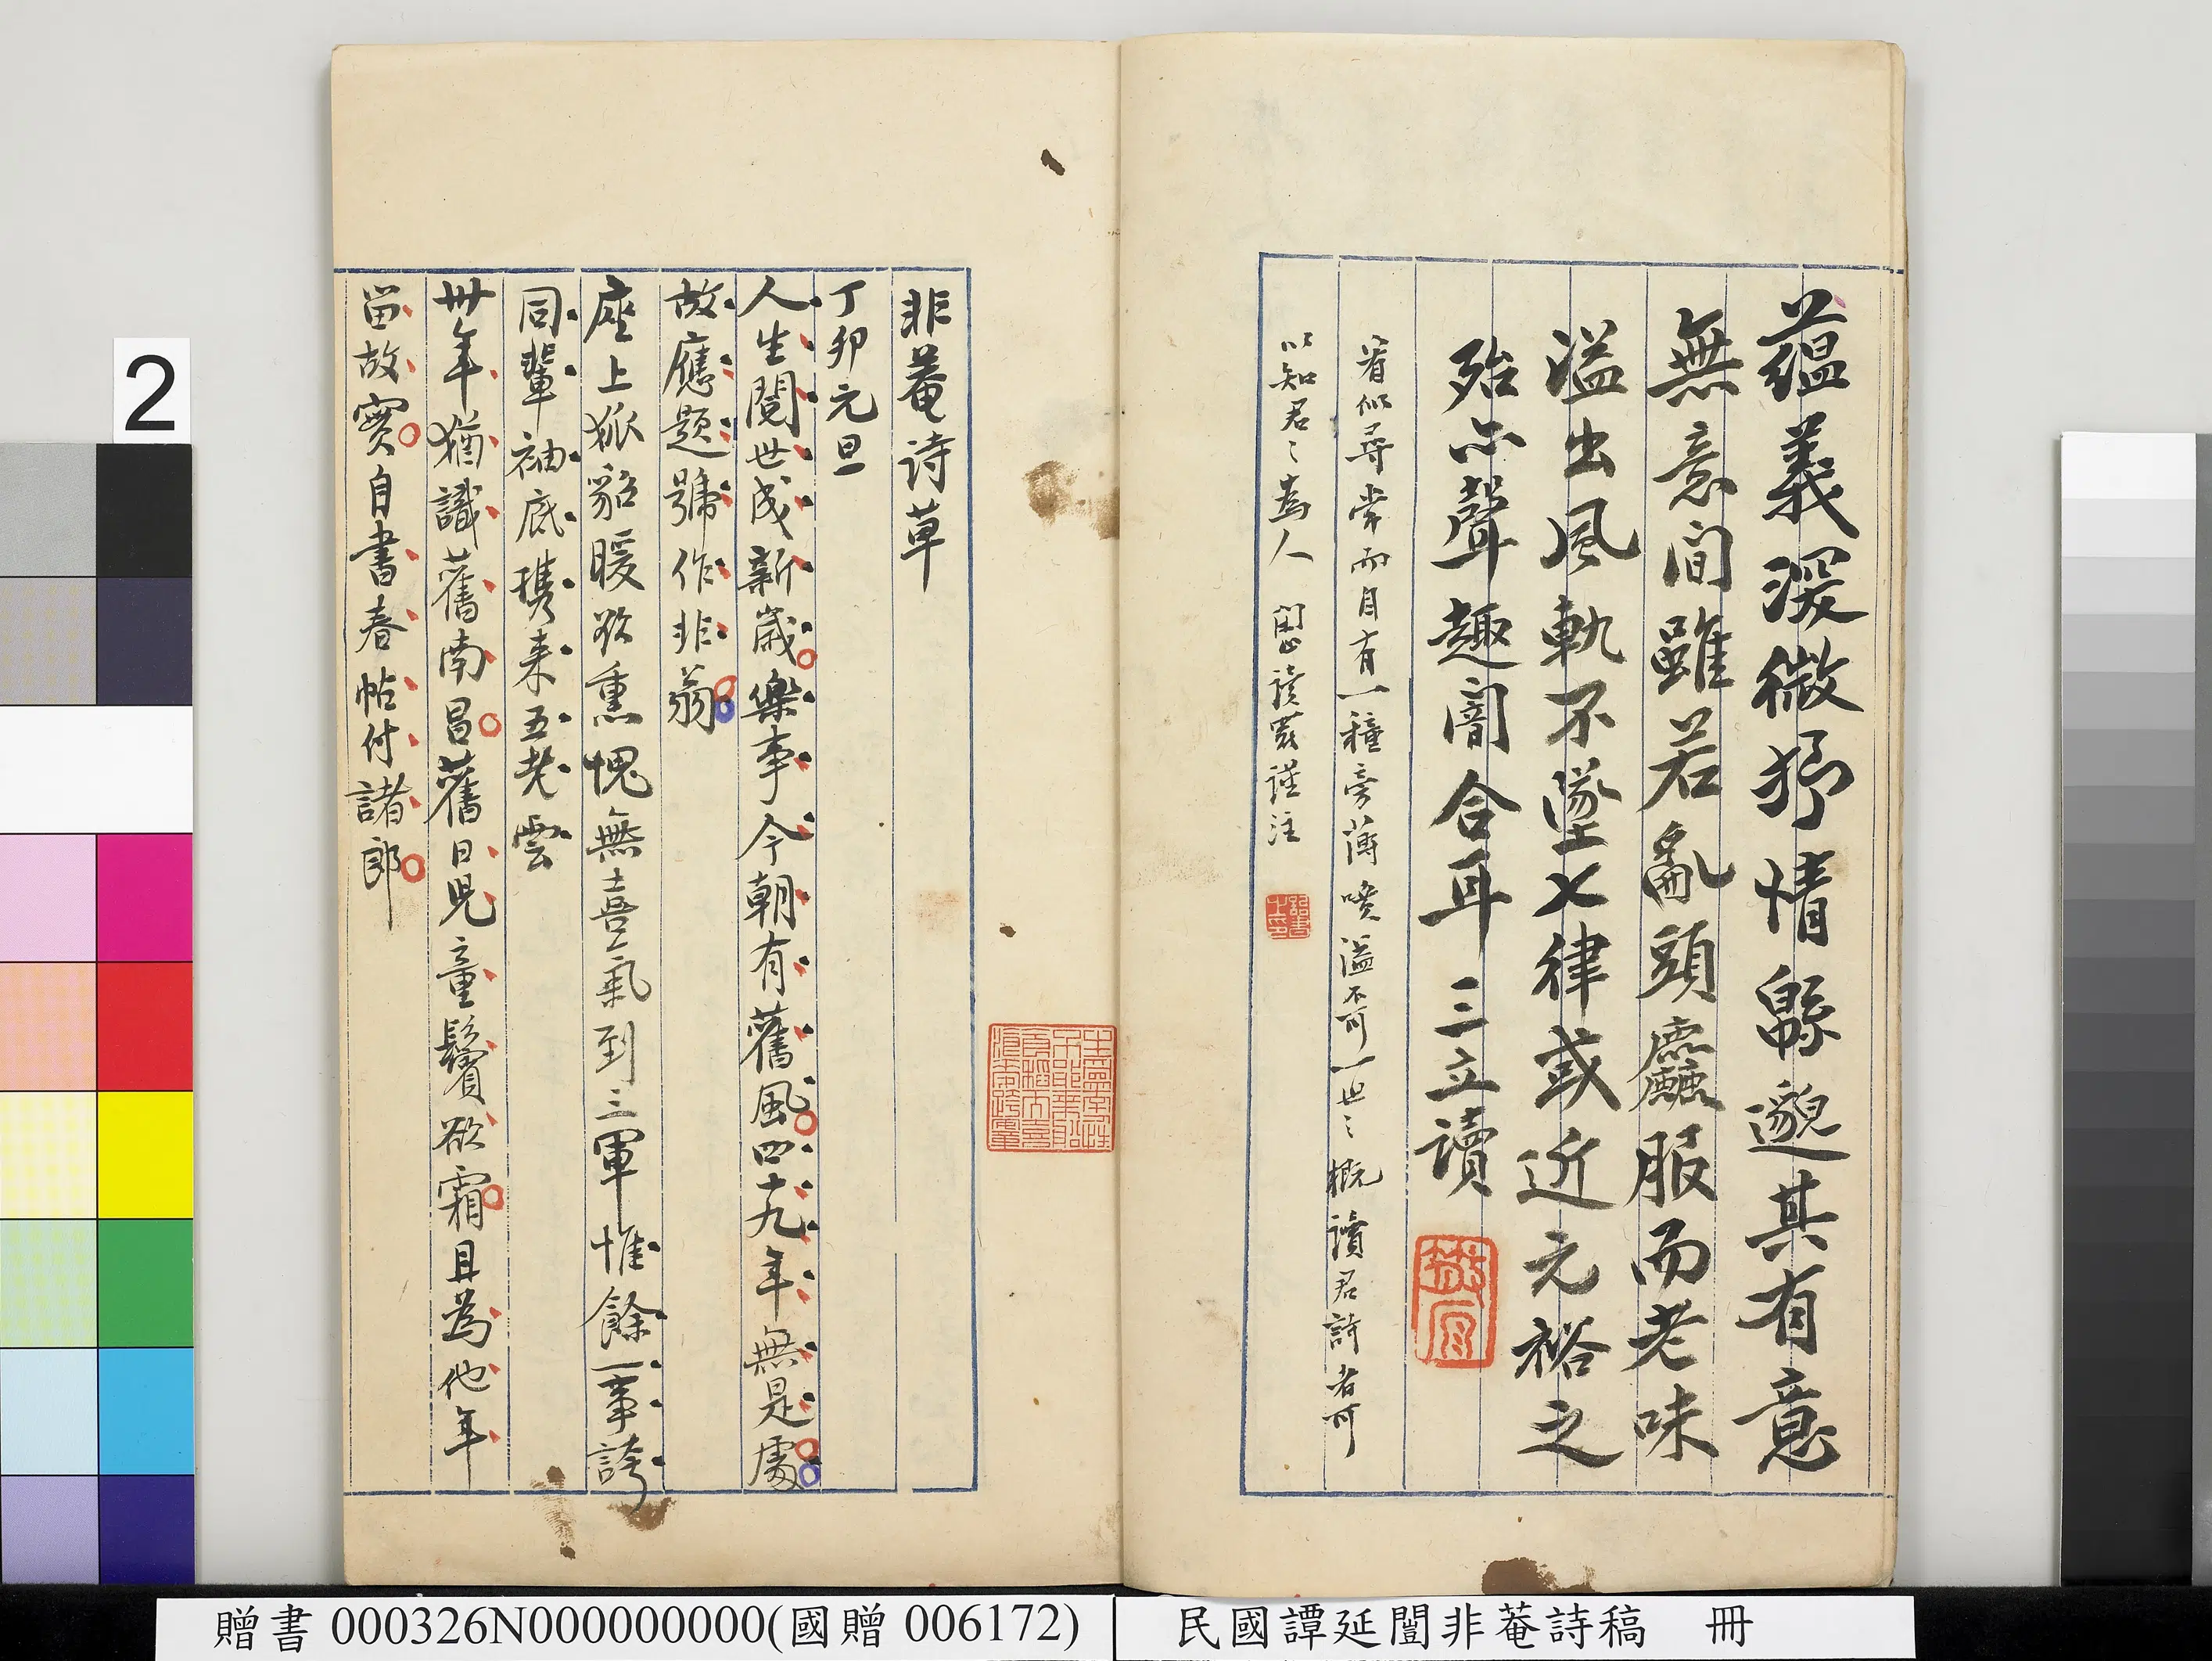 蘊義深微抒情緜邈其有意
無意間雖若亂頭麤服而老味
溢出風軌不墜七律或近元裕之
殆亦聲趣闇合耳 三立讀
看似尋常而自有一種旁薄噴溢不可一世之概讀君詩者可
以知君之為人 閏畢讀竟謹注
非菴詩草
丁卯元旦
人生閱世成新歲樂事今朝有舊風四十九年無是處
故應題號作非翁
座上狐貂暖欲熏愧無喜氣到三軍惟餘一事誇
同輩袖底携来五老雲
卅年猶識舊南昌舊日兒童鬢欲霜且為他年
留故實自書春帖付諸郎
2
贈書 000326N000000000(國贈 006172)
民國譚延闓非菴詩稿 冊